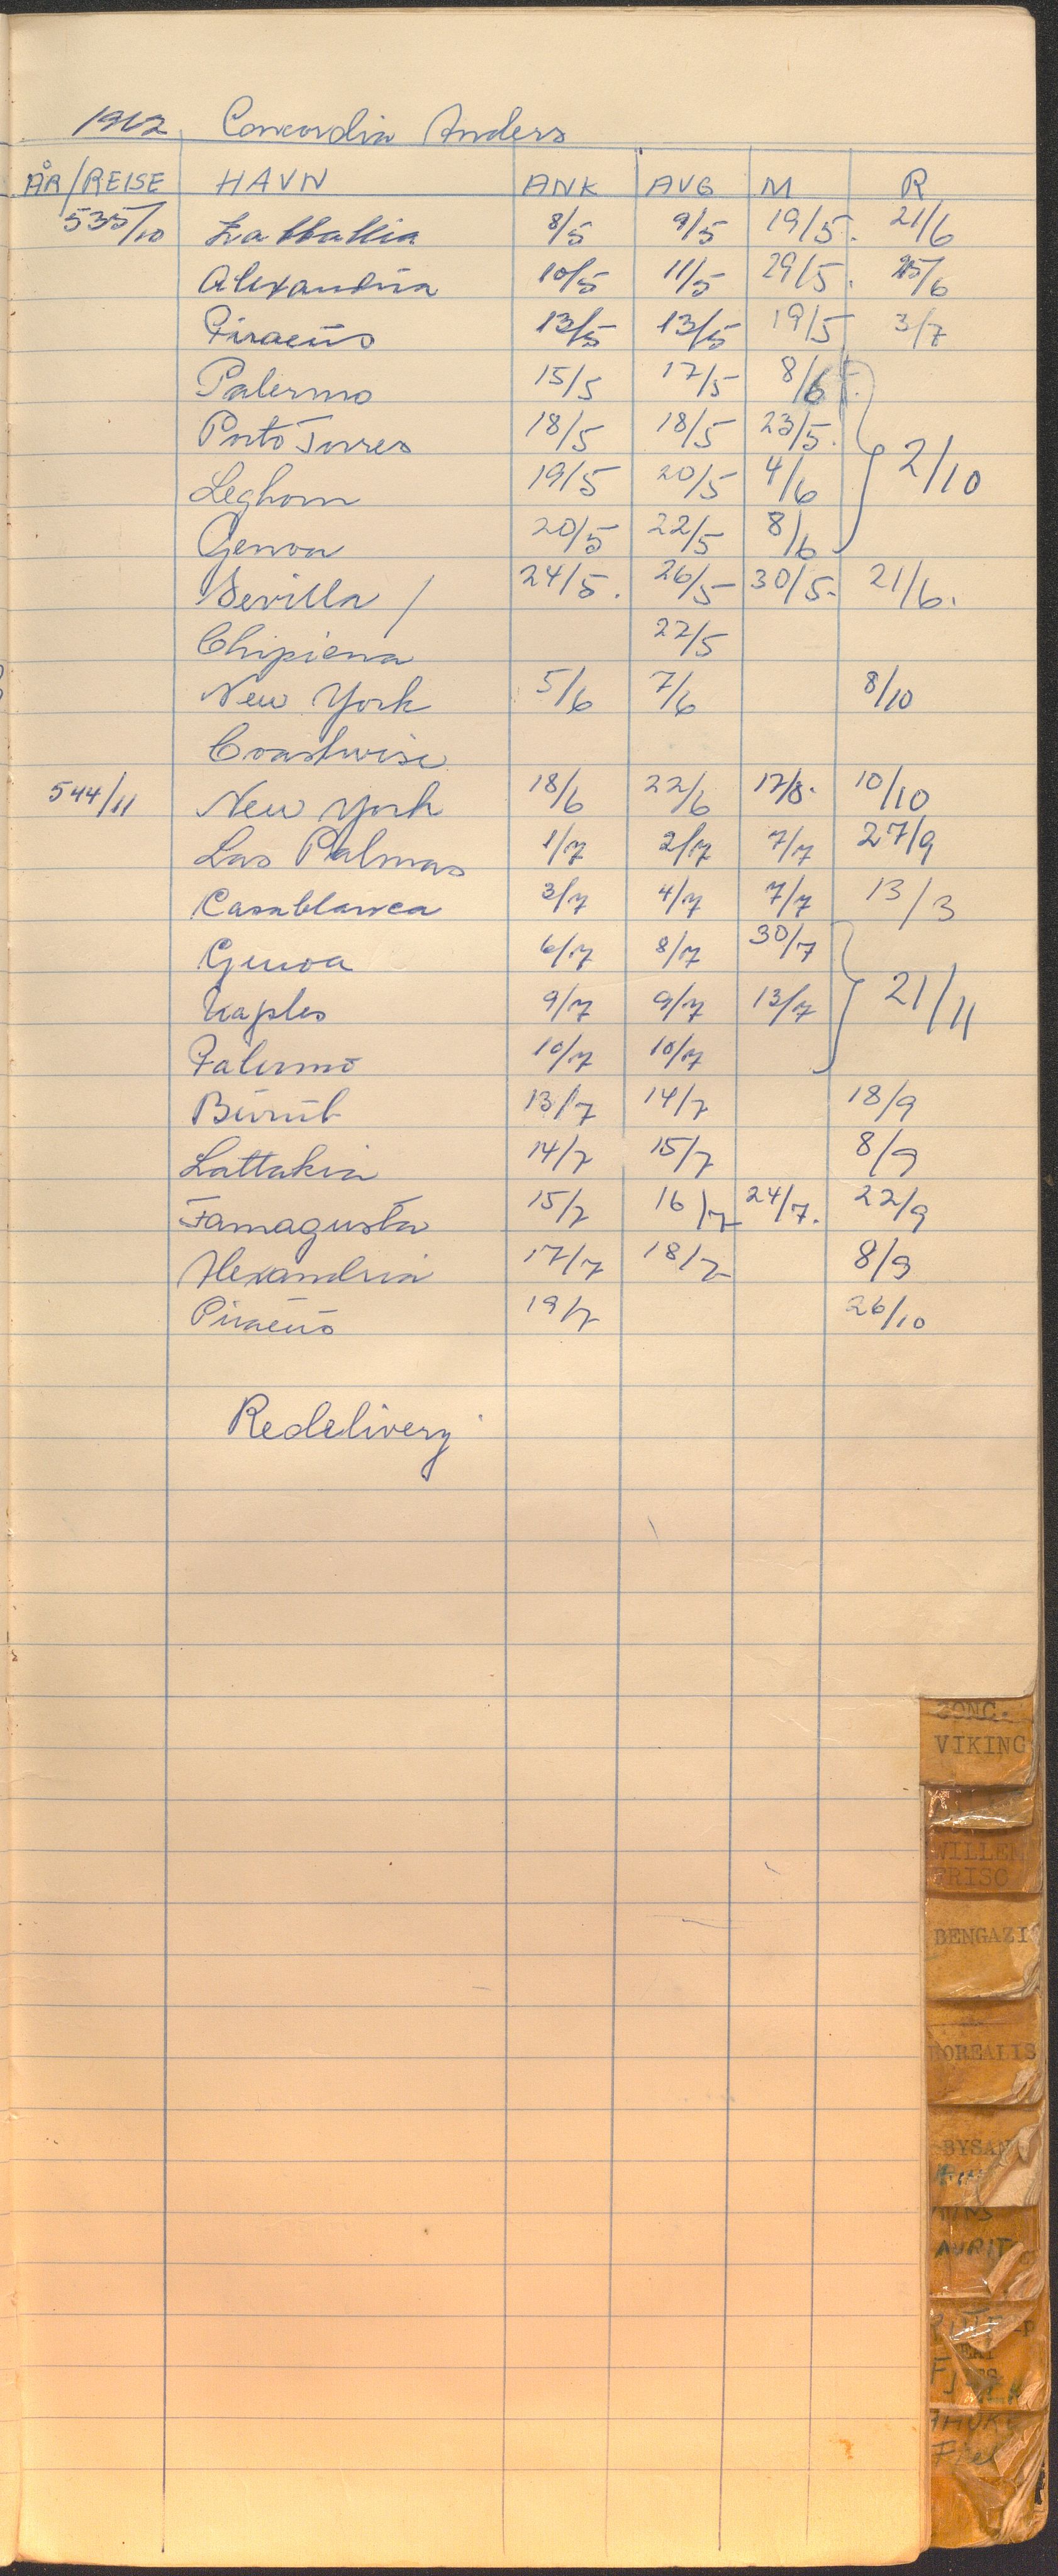 1962 Concordia Anders
ÅR/REISE HAVN ANK AVG M R
535/10 Lattakia 8/5 9/5 19/5. 21/6
Alexandria 10/5 11/5 29/5. 25/6
Piraeus 13/5 13/5 19/5 3/7
Palermo 15/5 17/5 8/6
Porto Torres 18/5 18/5 23/5.
Leghorn 19/5 20/5 4/6 2/10
Genoa 20/5 22/5 8/6
Sevilla / 24/5. 26/5 30/5. 21/6.
Chipiena 22/5
New York 5/6 7/6 8/10
Coastwise
544/11 New York 18/6 22/6 17/8. 10/10
Las Palmas 1/7 2/7 7/7 27/9
Casablanca 3/7 4/7 7/7 13/3
Genoa 6/7 8/7 30/7
Naples 9/7 9/7 13/7 21/11
Palermo 10/7 10/7
Beirut 13/7 14/7 18/9
Lattakia 14/7 15/7 8/9
Famagusta 15/7 16/7 24/7. 22/9
Alexandria 17/7 18/7 8/9
Piraeus 19/7 26/10
Redelivery
CONC.
VIKING
WILLEM
FRISO
BENGAZI
BOREALIS
BYSAN